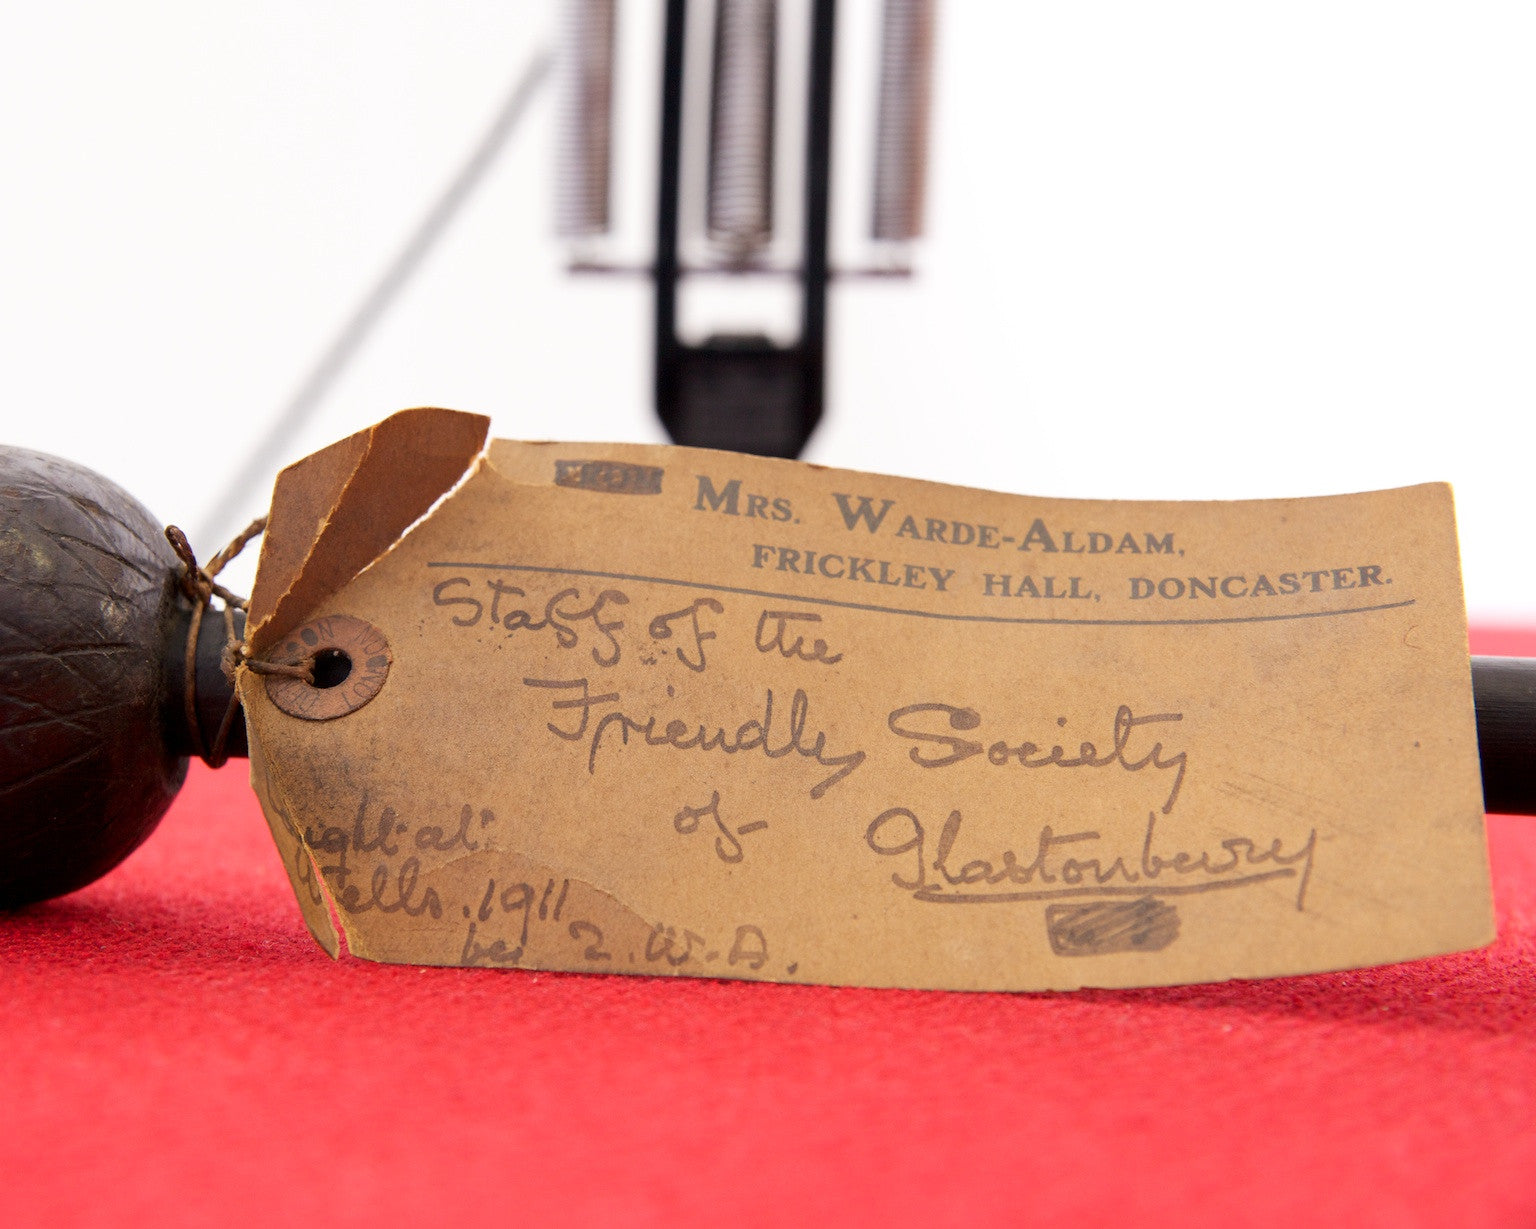 MRS. WARDE-ALDAM,
FRICKLEY HALL, DONCASTER.
Staff of the
Friendly Society
of Glastonbury
at
Wells. 1911
W.A.